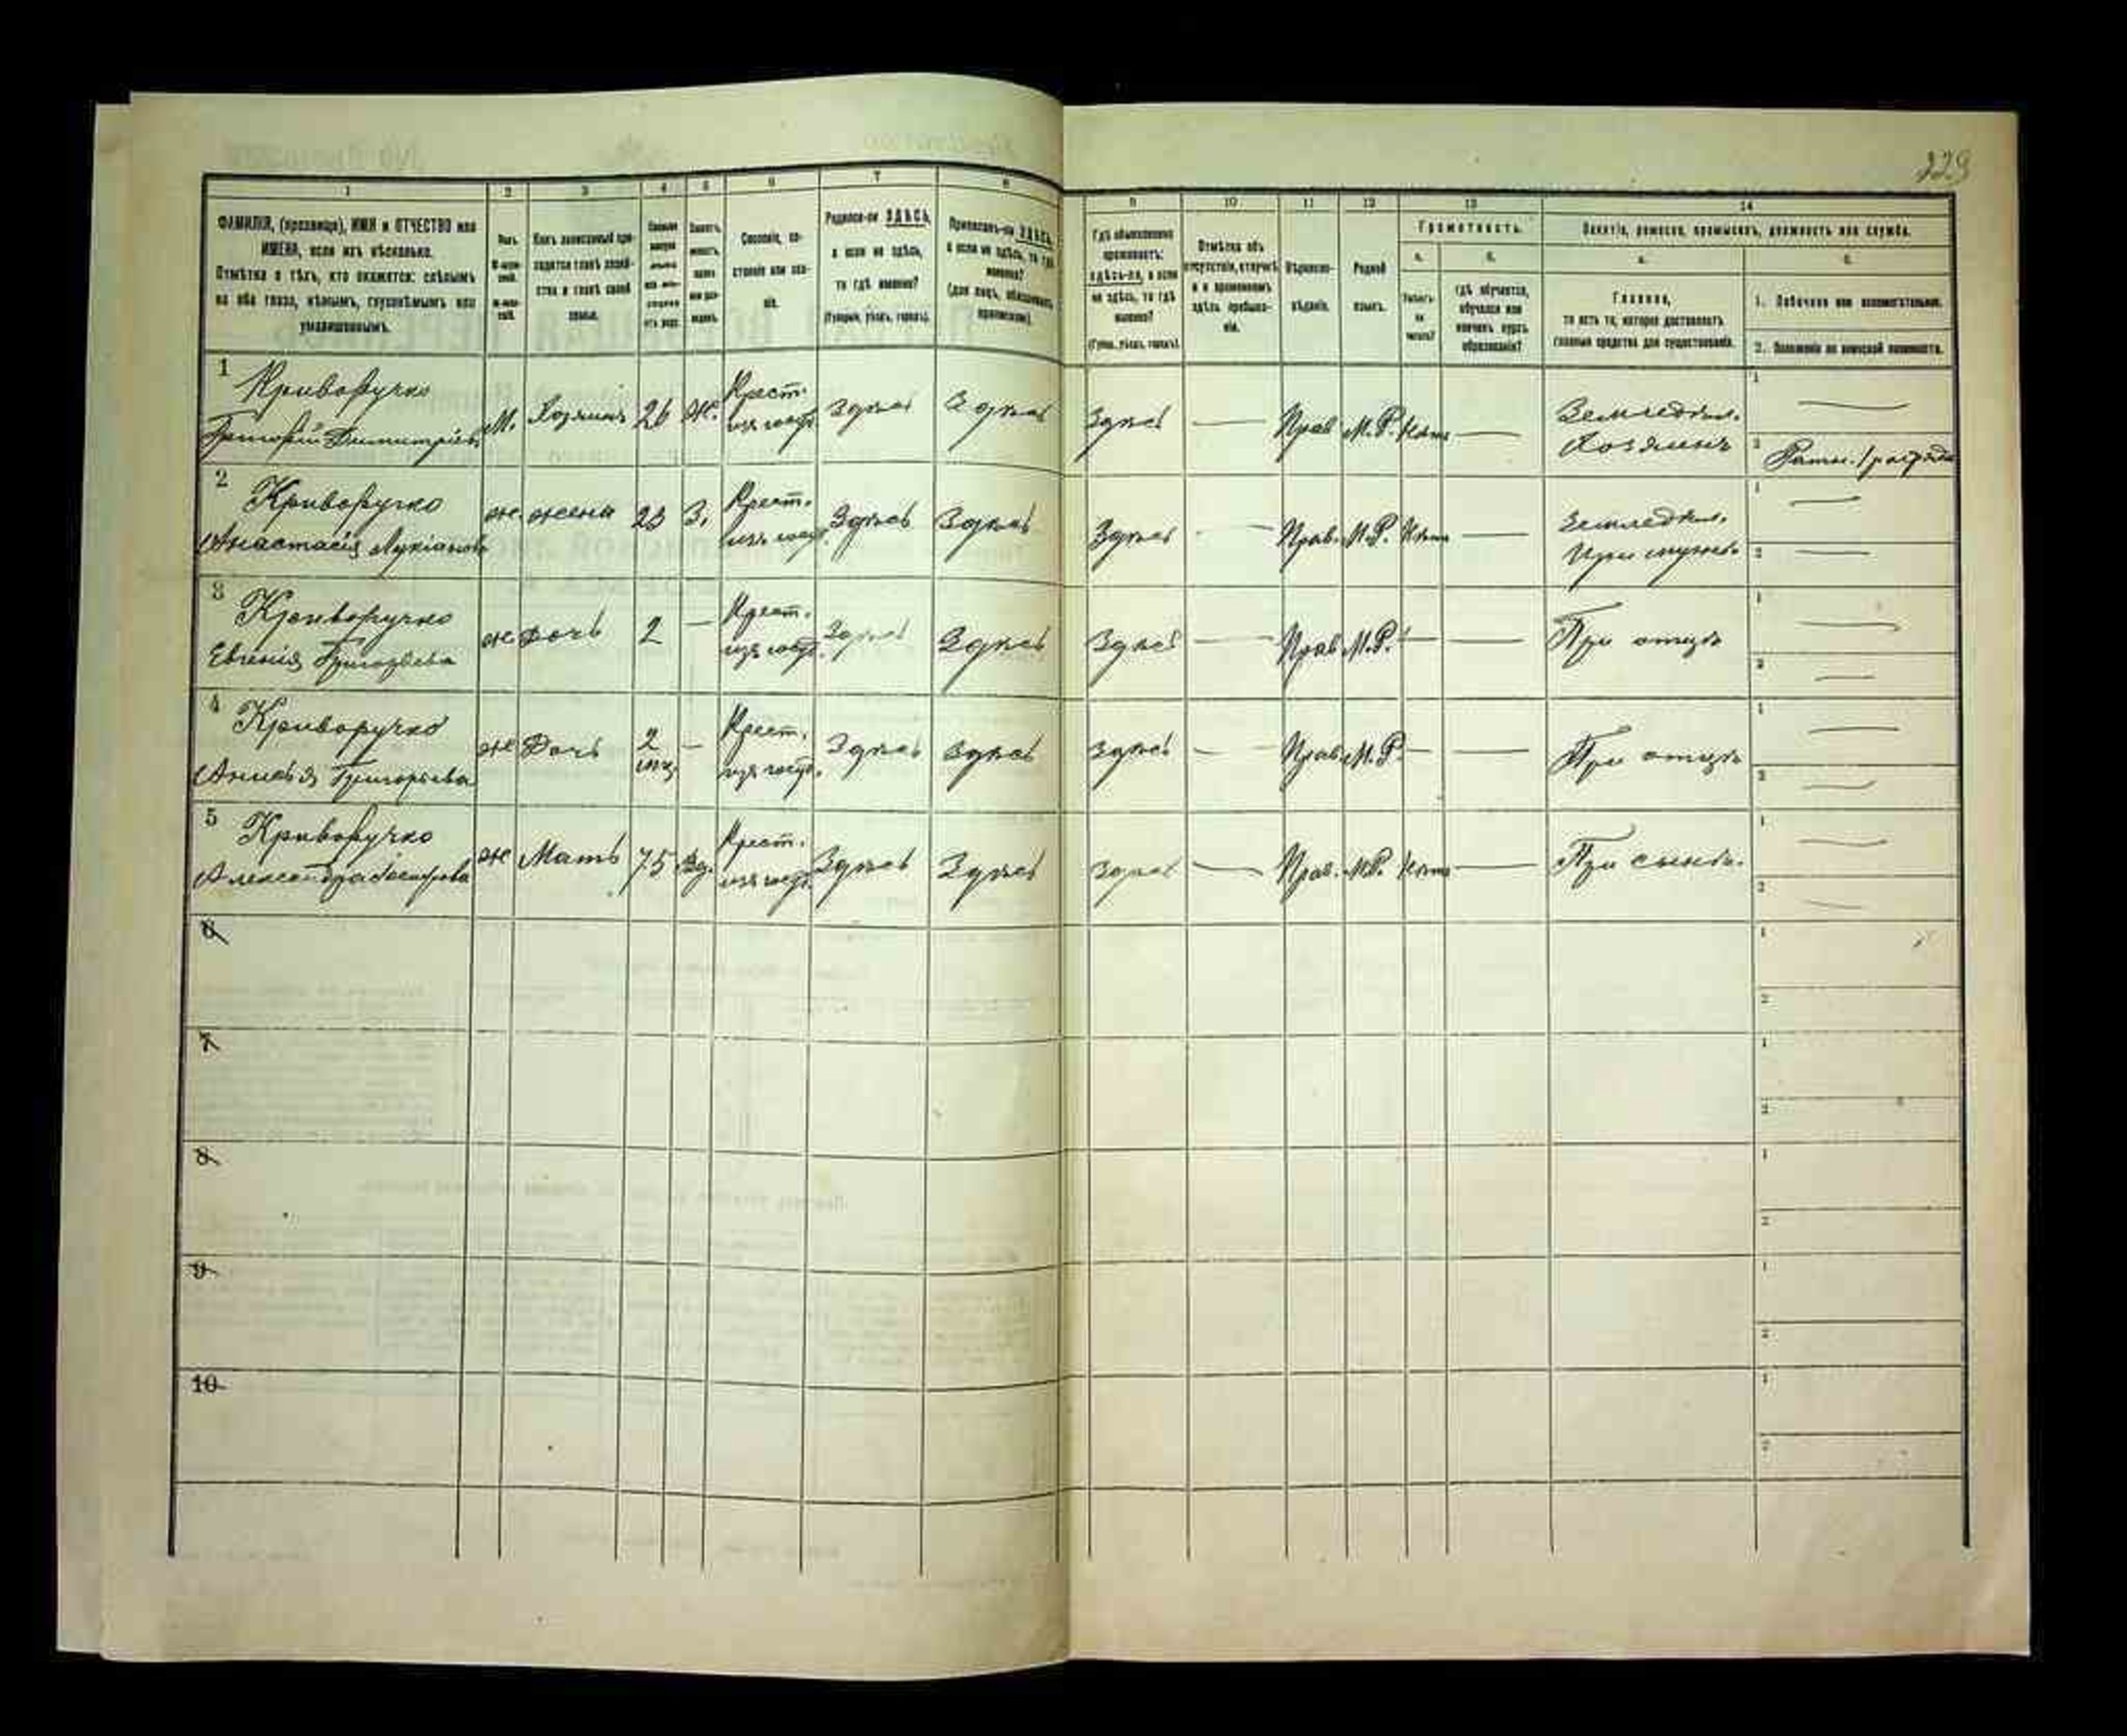 229
1 2 3 4 5 6 7 8 9 10 11 12 13 14
ФАМИЛІЯ, (прозвище), ИМЯ и ОТЧЕСТВО или
ИМЕНА, если ихъ нѣсколько.
Отмѣтка о тѣхъ, кто окажется: слѣпымъ
на оба глаза, нѣмымъ, глухонѣмымъ или
умалишеннымъ.
Полъ.
Какъ записанный при-
ходится главѣ хозяй-
ства и главѣ своей
семьи.
Сословіе, со-
стояніе или зва-
ніе.
Родился-ли ЗДѢСЬ,
а если не здѣсь,
то гдѣ именно?
(Губернія, уѣздъ, городъ).
Приписанъ-ли ЗДѢСЬ,
а если не здѣсь, то гдѣ
именно?
(для лицъ, обязанныхъ
припискою).
Гдѣ обыкновенно
проживаетъ:
здѣсь-ли, а если
не здѣсь, то гдѣ
именно?
(Губер., уѣздъ, городъ).
Отмѣтка объ
отсутствіи, отлучкѣ
и о временномъ
здѣсь пребыва-
ніи.
Вѣроиспо-
вѣданіе.
Родной
языкъ.
Грамотность.
а. б.
Умѣетъ-
ли
читать?
гдѣ обучается,
обучался или
кончилъ курсъ
образованія?
Занятіе, ремесло, промыселъ, должность или служба.
а. б.
Главное,
то есть то, которое доставляетъ
главныя средства для существованія.
1. Побочное или вспомогательное.
2. Положеніе по воинской повинности.
1 Криворучко М. Хозяинъ 26 Ж. Крест. Здѣсь Здѣсь Здѣсь — Прав М.Р. Нѣтъ — Земледѣл. 1 —
Григорій Димитріев изъ госуд. Хозяинъ 2 Ратн. 1 разряда
2 Криворучко ж. жена 23 З. Крест. Здѣсь Здѣсь Здѣсь — Прав. М.Р. Нѣтъ — Земледѣл. 1 —
Анастасія Лукіанов изъ госуд. При мужѣ 2 —
3 Криворучко ж Дочь 2 — Крест. Здѣсь Здѣсь Здѣсь — Прав М.Р. — — При отцѣ 1 —
Евгенія Григорьева изъ госуд. 2 —
4 Криворучко ж Дочь 2 — Крест. Здѣсь Здѣсь Здѣсь — Прав. М.Р. — — При отцѣ 1 —
Григорьева мѣс. изъ госуд. 2 —
5 Криворучко ж Мать 75 Вд. Крест. Здѣсь Здѣсь Здѣсь — Прав. М.Р. Нѣтъ — При сынѣ. 1 —
Александра изъ госуд. 2 —
6 1
2
7 1
2
8 1
2
9 1
2
10 1
2